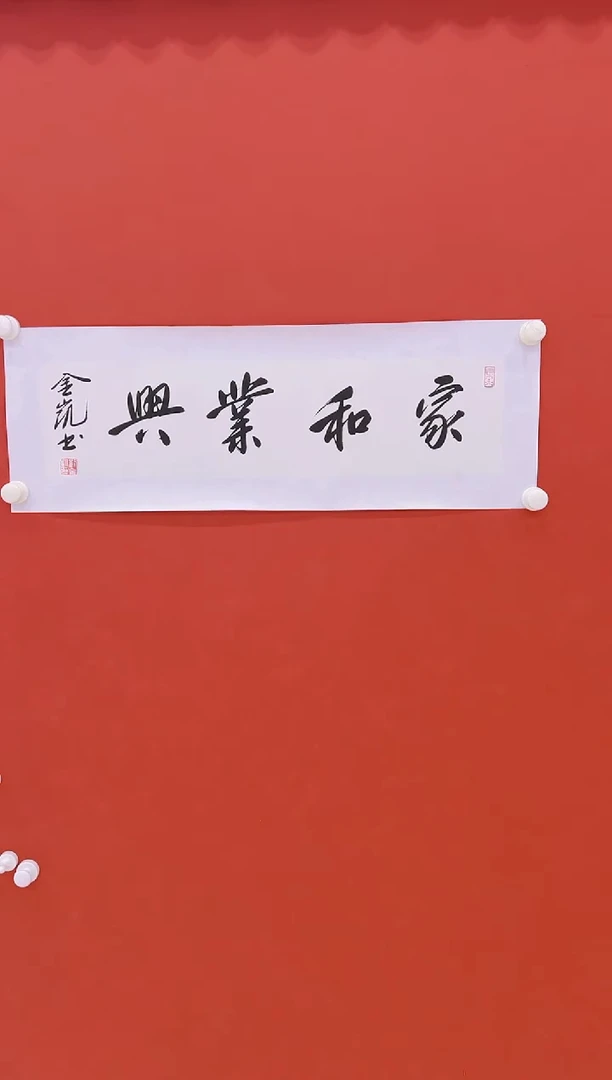 家和業興
金凱书